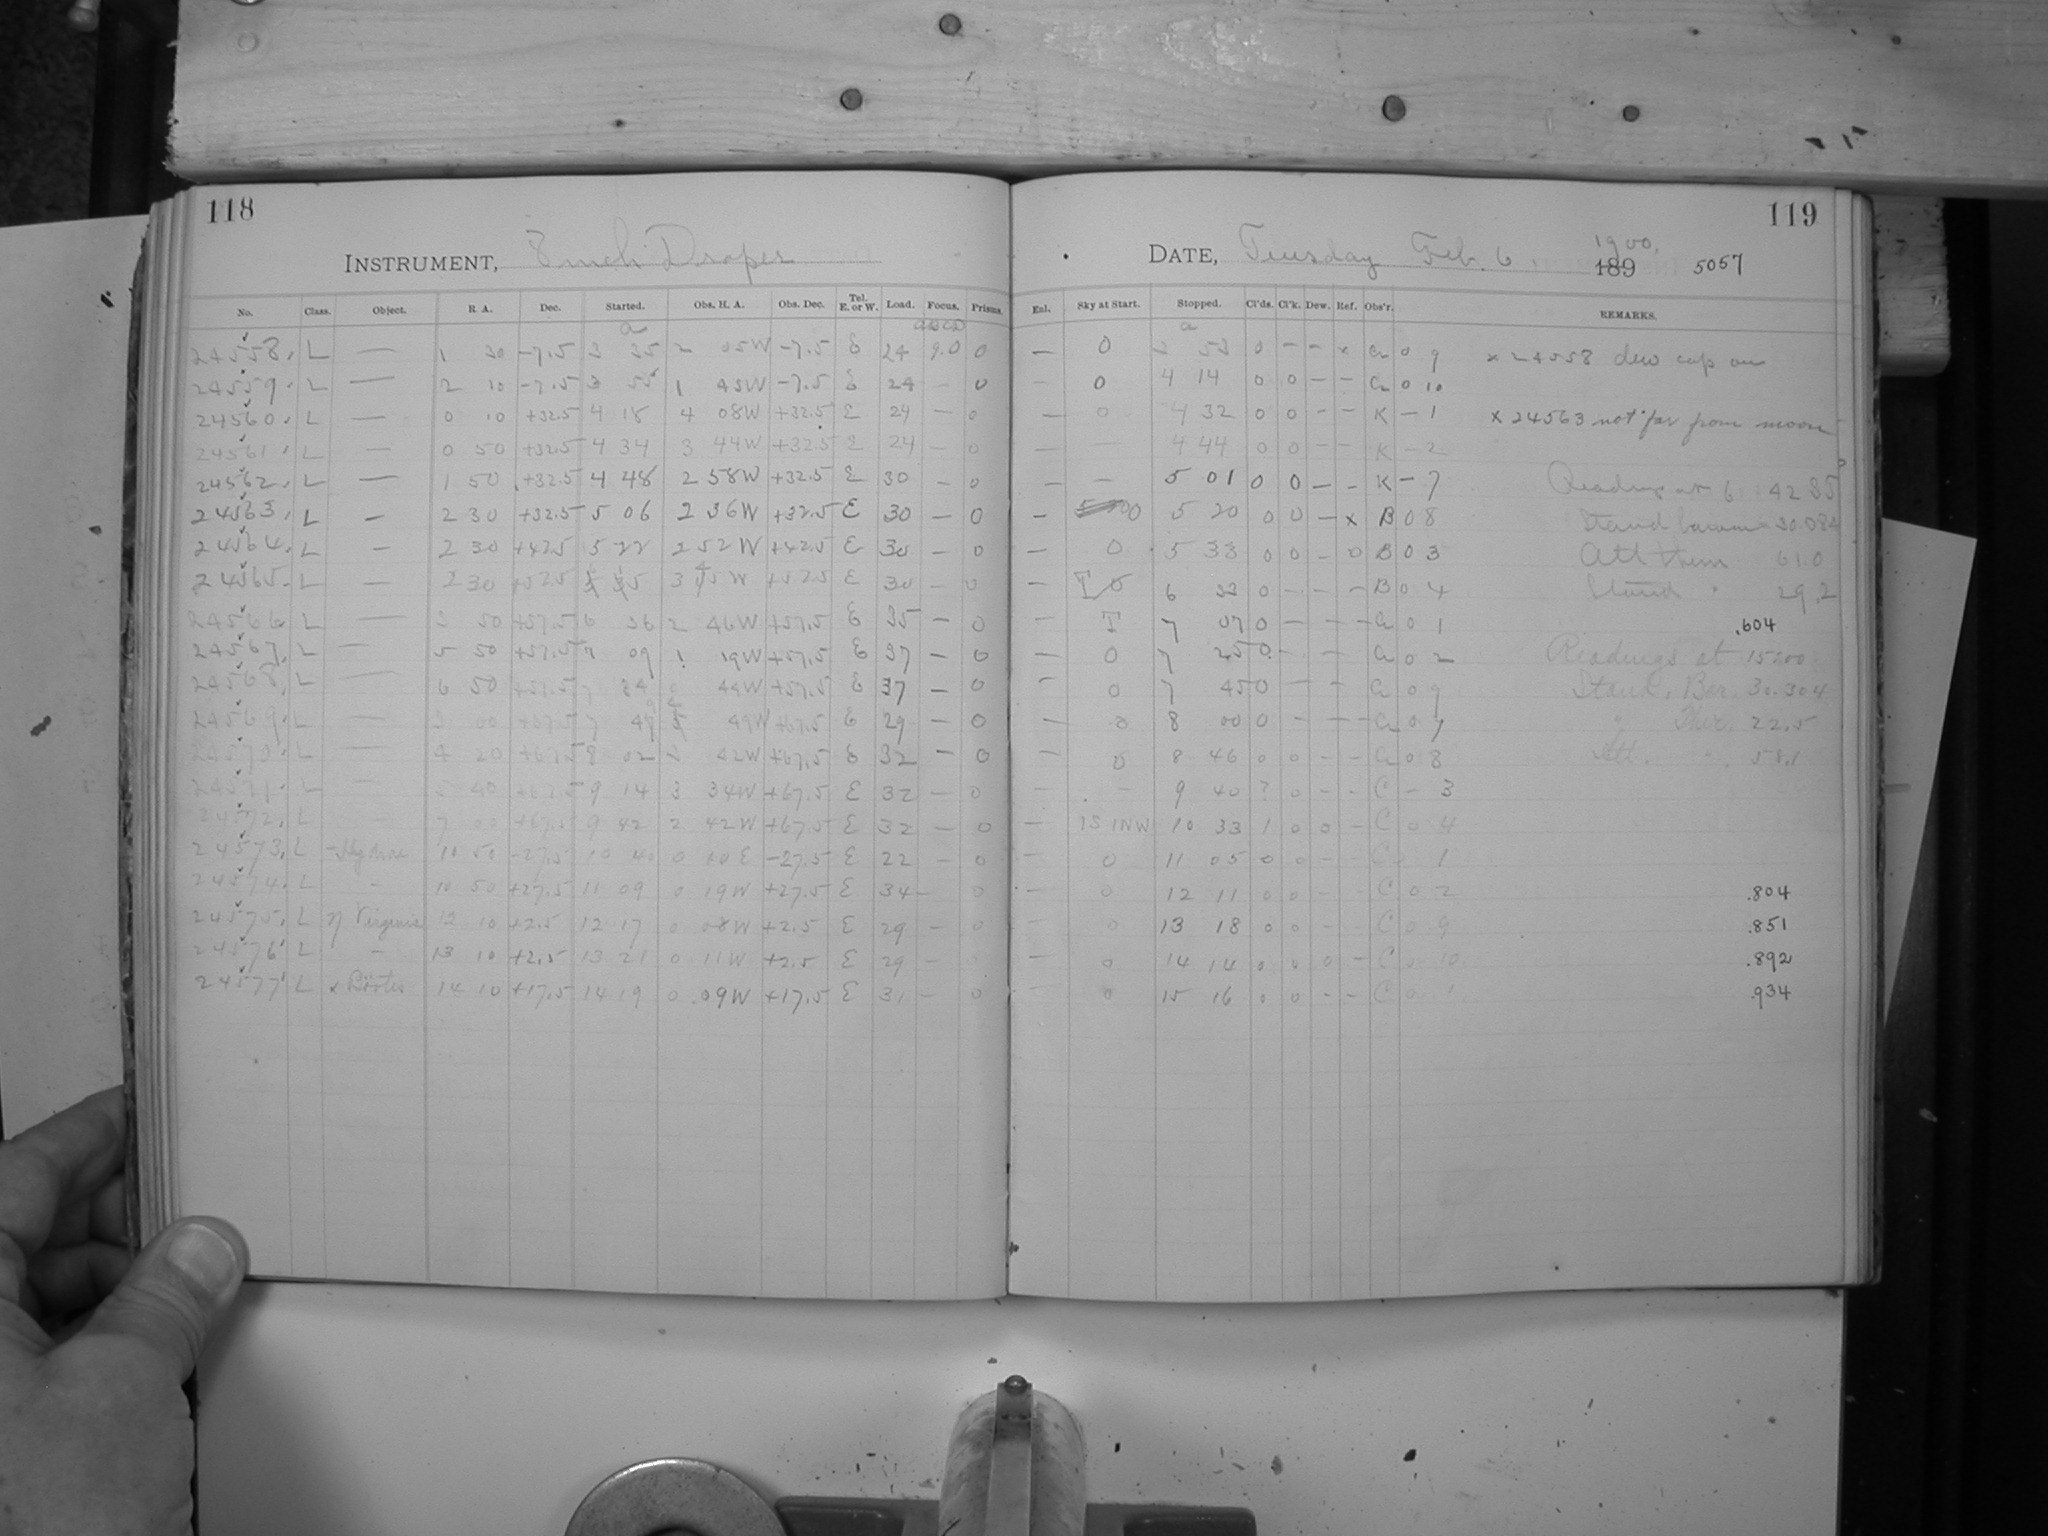 118
INSTRUMENT, 8 inch Draper
No. Class. Object. R. A. Dec. Started. Obs. H. A. Obs. Dec. Tel. E. or W. Load. Focus. Prisms.
a ABCD
24558. L — 1 30 -7.5 3 35 2 05W -7.5 E 24 9.0 0
24559. L — 2 10 -7.5 3 55 1 45W -7.5 E 24 — 0
24560. L — 0 10 +32.5 4 18 4 08W +32.5 E 24 — 0
24561. L — 0 50 +32.5 4 34 3 44W +32.5 E 24 — 0
24562. L — 1 50 +32.5 4 48 2 58W +32.5 E 30 — 0
24563. L — 2 30 +32.5 5 06 2 36W +32.5 E 30 — 0
24564. L — 2 30 +42.5 5 22 2 52W +42.5 E 30 — 0
24565. L — 2 30 +52.5 +52.5 E 30 — 0
24566 L — 3 50 +57.5 6 36 2 46W +57.5 E 35 — 0
24567. L — 5 50 +57.5 7 09 1 19W +57.5 E 37 — 0
24568. L — 6 50 +57.5 7 34 0 44W +57.5 E 37 — 0
24569. L — 3 00 +67.5 7 49 49W +67.5 E 29 — 0
24570. L — 4 20 +67.5 8 02 3 42W +67.5 E 32 — 0
24571. L — 5 40 +67.5 9 14 3 34W +67.5 E 32 — 0
24572. L — 7 00 +67.5 9 42 2 42W +67.5 E 32 — 0
24573. L Hydrae 10 50 -27.5 10 40 0 10E -27.5 E 22 — 0
24574. L - 10 50 +27.5 11 09 0 19W +27.5 E 34 — 0
24575. L η Virginis 12 10 +2.5 12 17 0 08W +2.5 E 29 — 0
24576 L - 13 10 +2.5 13 21 0 11W +2.5 E 29 — 0
24577 L Bootes 14 10 +17.5 14 19 0 09W +17.5 E 31 — 0
119
DATE, Tuesday Feb. 6 1900, 189 5057
Enl. Sky at Start. Stopped. Cl'ds. Cl'k. Dew. Ref. Obs'r. REMARKS.
a
— 0 3 53 0 — — x a 0 9 x 24558 dew cap on
— 0 4 14 0 0 — — a 0 10
— 0 4 32 0 0 — — K — 1 x 24563 not far from moon
— — 4 44 0 0 — — K — 2
— — 5 01 0 0 — — K — 7 Readings at 6 42 85
— 0 5 20 0 0 — x B 0 8 Stand barom 30.082
— 0 5 33 0 0 — 0 B 0 3 Att them 61.0
— 6 33 0 — — — B 0 4 Stand " 29.2
— T 7 07 0 — — — a 0 1 .604
— 0 7 25 0 — — — a 0 2 Readings at 15h00
— 0 7 45 0 — — — a 0 9 Stand. Bar. 30.304
— 0 8 00 0 — — — a 0 7 " Ther. 22.5
— 0 8 46 0 0 — — a 0 8 Att. " 58.1
— — 9 40 ? 0 — — C — 3
— 10 33 1 0 0 — C 0 4
— 0 11 05 0 0 — — C 1
— 0 12 11 0 0 — — C 0 2 .804
— 0 13 18 0 0 — — C 0 9 .851
— 0 14 14 0 0 0 — C 0 10 .892
— 0 15 16 0 0 — — C 0 .934